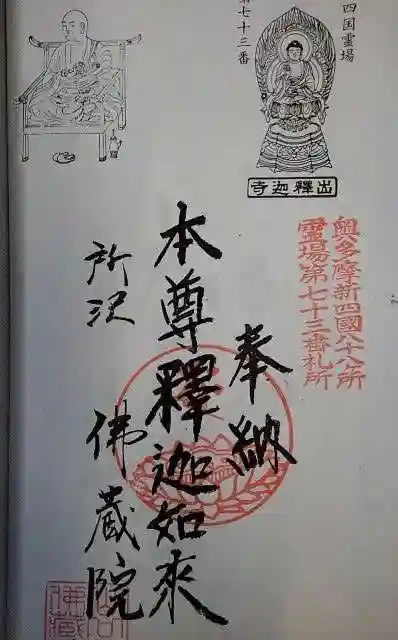 四国霊場
第七十三番
出釋迦寺
奥多摩新四國八十八所
霊場第七十三番札所
奉納
本尊釋迦如來
所沢
佛蔵院
佛蔵